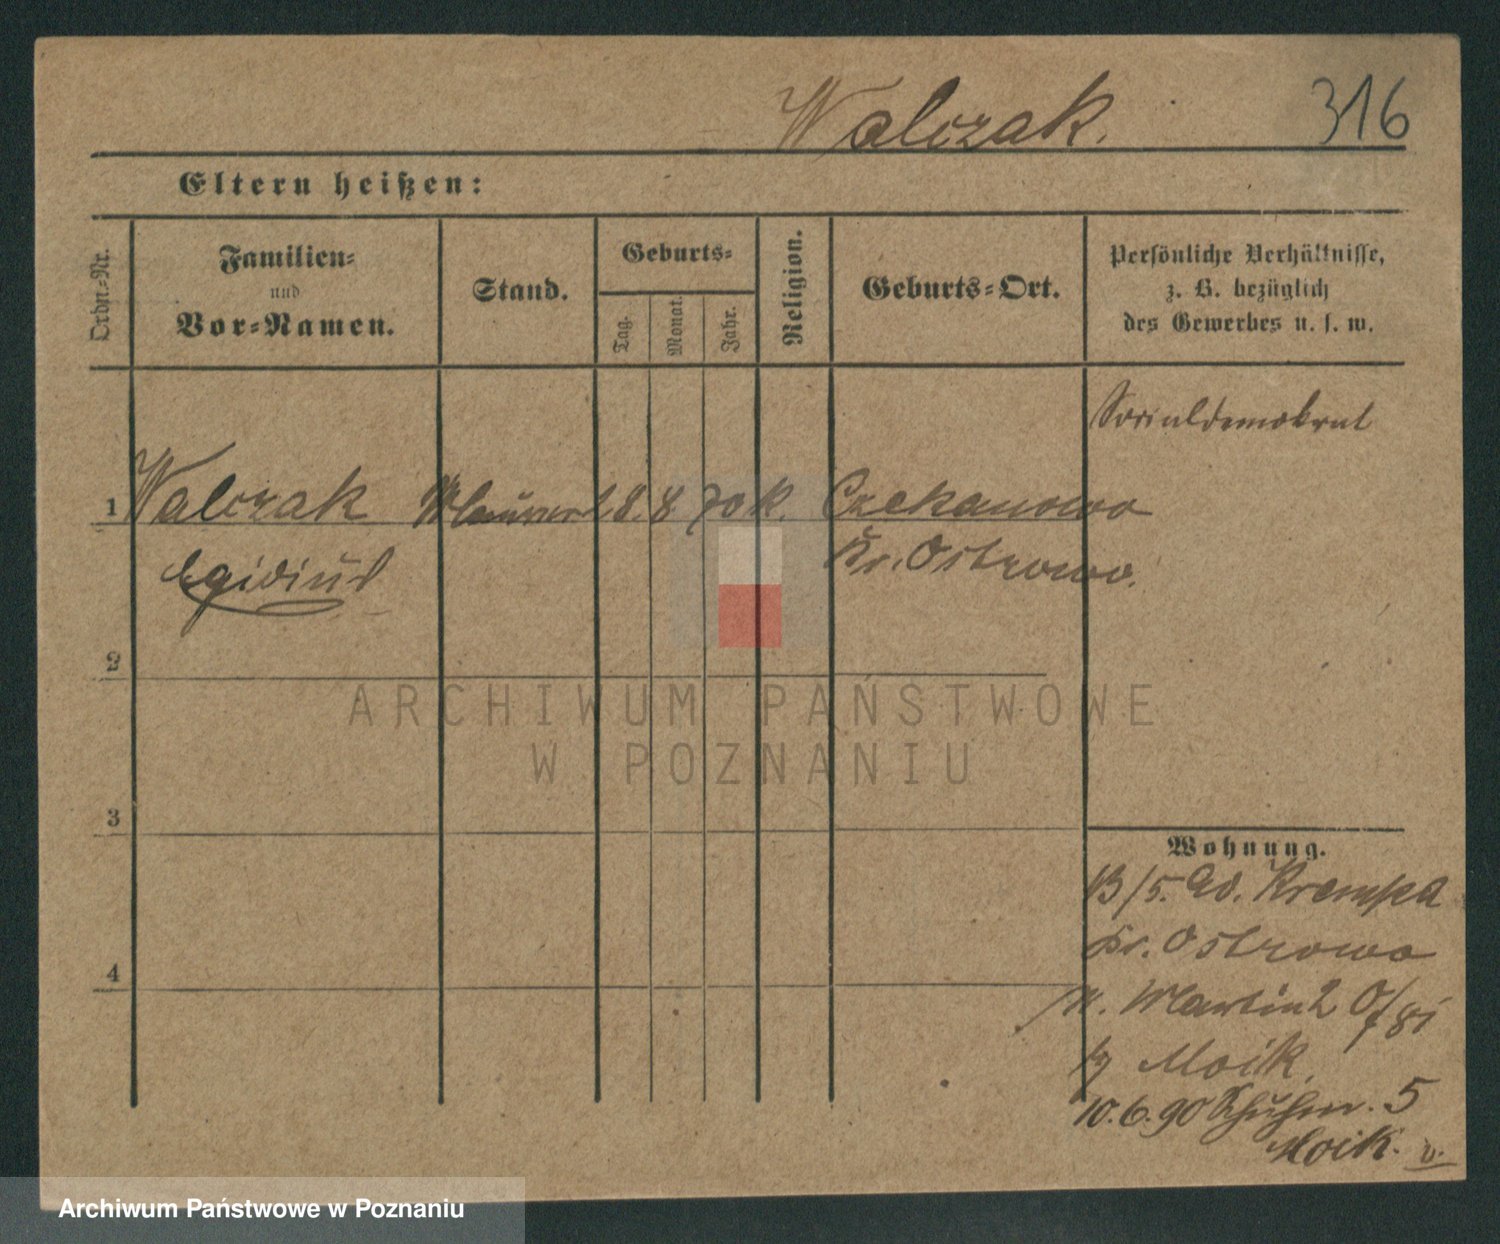 Walczak.
316
Eltern heißen:
Ordn.-Nr.
Familien-
und
Vor-Namen.
Stand.
Geburts-
Tag.
Monat.
Jahr.
Religion.
Geburts-Ort.
Persönliche Verhältnisse,
z. B. bezüglich
des Gewerbes u. s. w.
Socialdemokrat
1 Walczak Maurer 8. 8 70 K. Czekanowo
Egidius Kr. Ostrowo.
2
3
4
Wohnung.
13/5. Krempa
Kr. Ostrowo
n. Martin
Moik.
10.6.90 Schuhm. 5
Moik. v.
ARCHIWUM PAŃSTWOWE
W POZNANIU
Archiwum Państwowe w Poznaniu